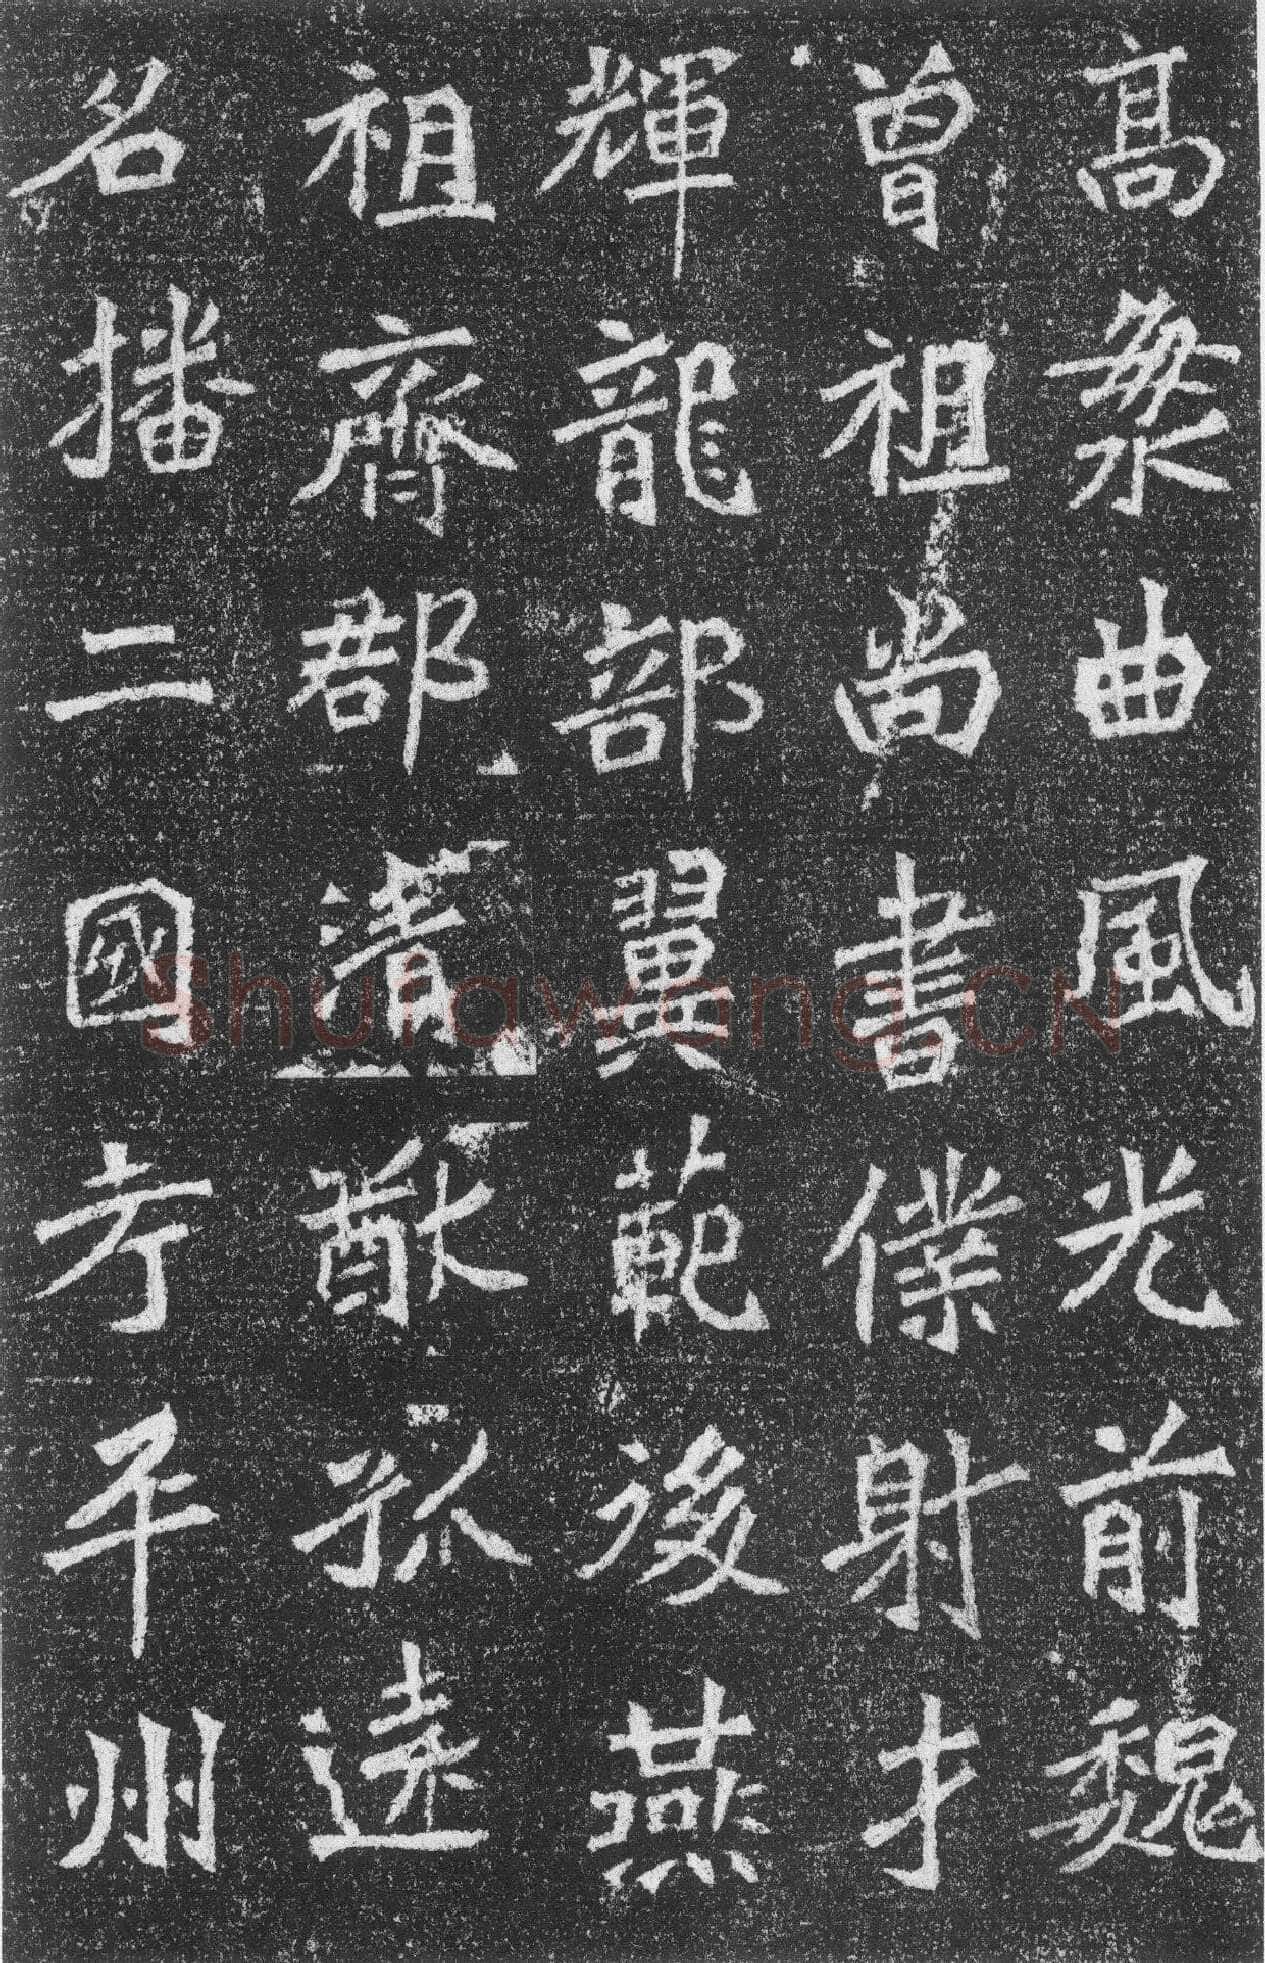 高曲風光前魏
曾祖尚書僕射才
輝龍部翼範後燕
祖齊郡清猷孤遠
名播二國考平州
Shufawang.CN